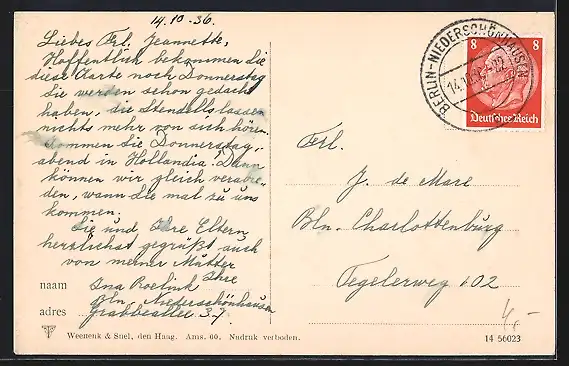 14.10.36.
Liebes Frl. Jeannette,
Hoffentlich bekommen Sie
diese Karte noch Donnerstag
Sie werden schon gedacht
haben, die Stendells lassen
nichts mehr von sich hören.
Kommen Sie Donnerstag-
abend in Hollandia? Dann
können wir gleich verabre-
den, wann Sie mal zu uns
kommen.
Sie und Ihre Eltern
herzlichst gegrüßt auch
von meiner Mutter
Ihre
naam Ina Roelink
Bln. Niederschönhausen
adres Grabbeallee 37
Weenenk & Snel, den Haag. Ams. 60. Nadruk verboden.
BERLIN-NIEDERSCHÖNHAUSEN
8 8
Deutsches Reich
Frl.
J. de Mare
Bln. Charlottenburg
Tegelerweg 102
14 56023